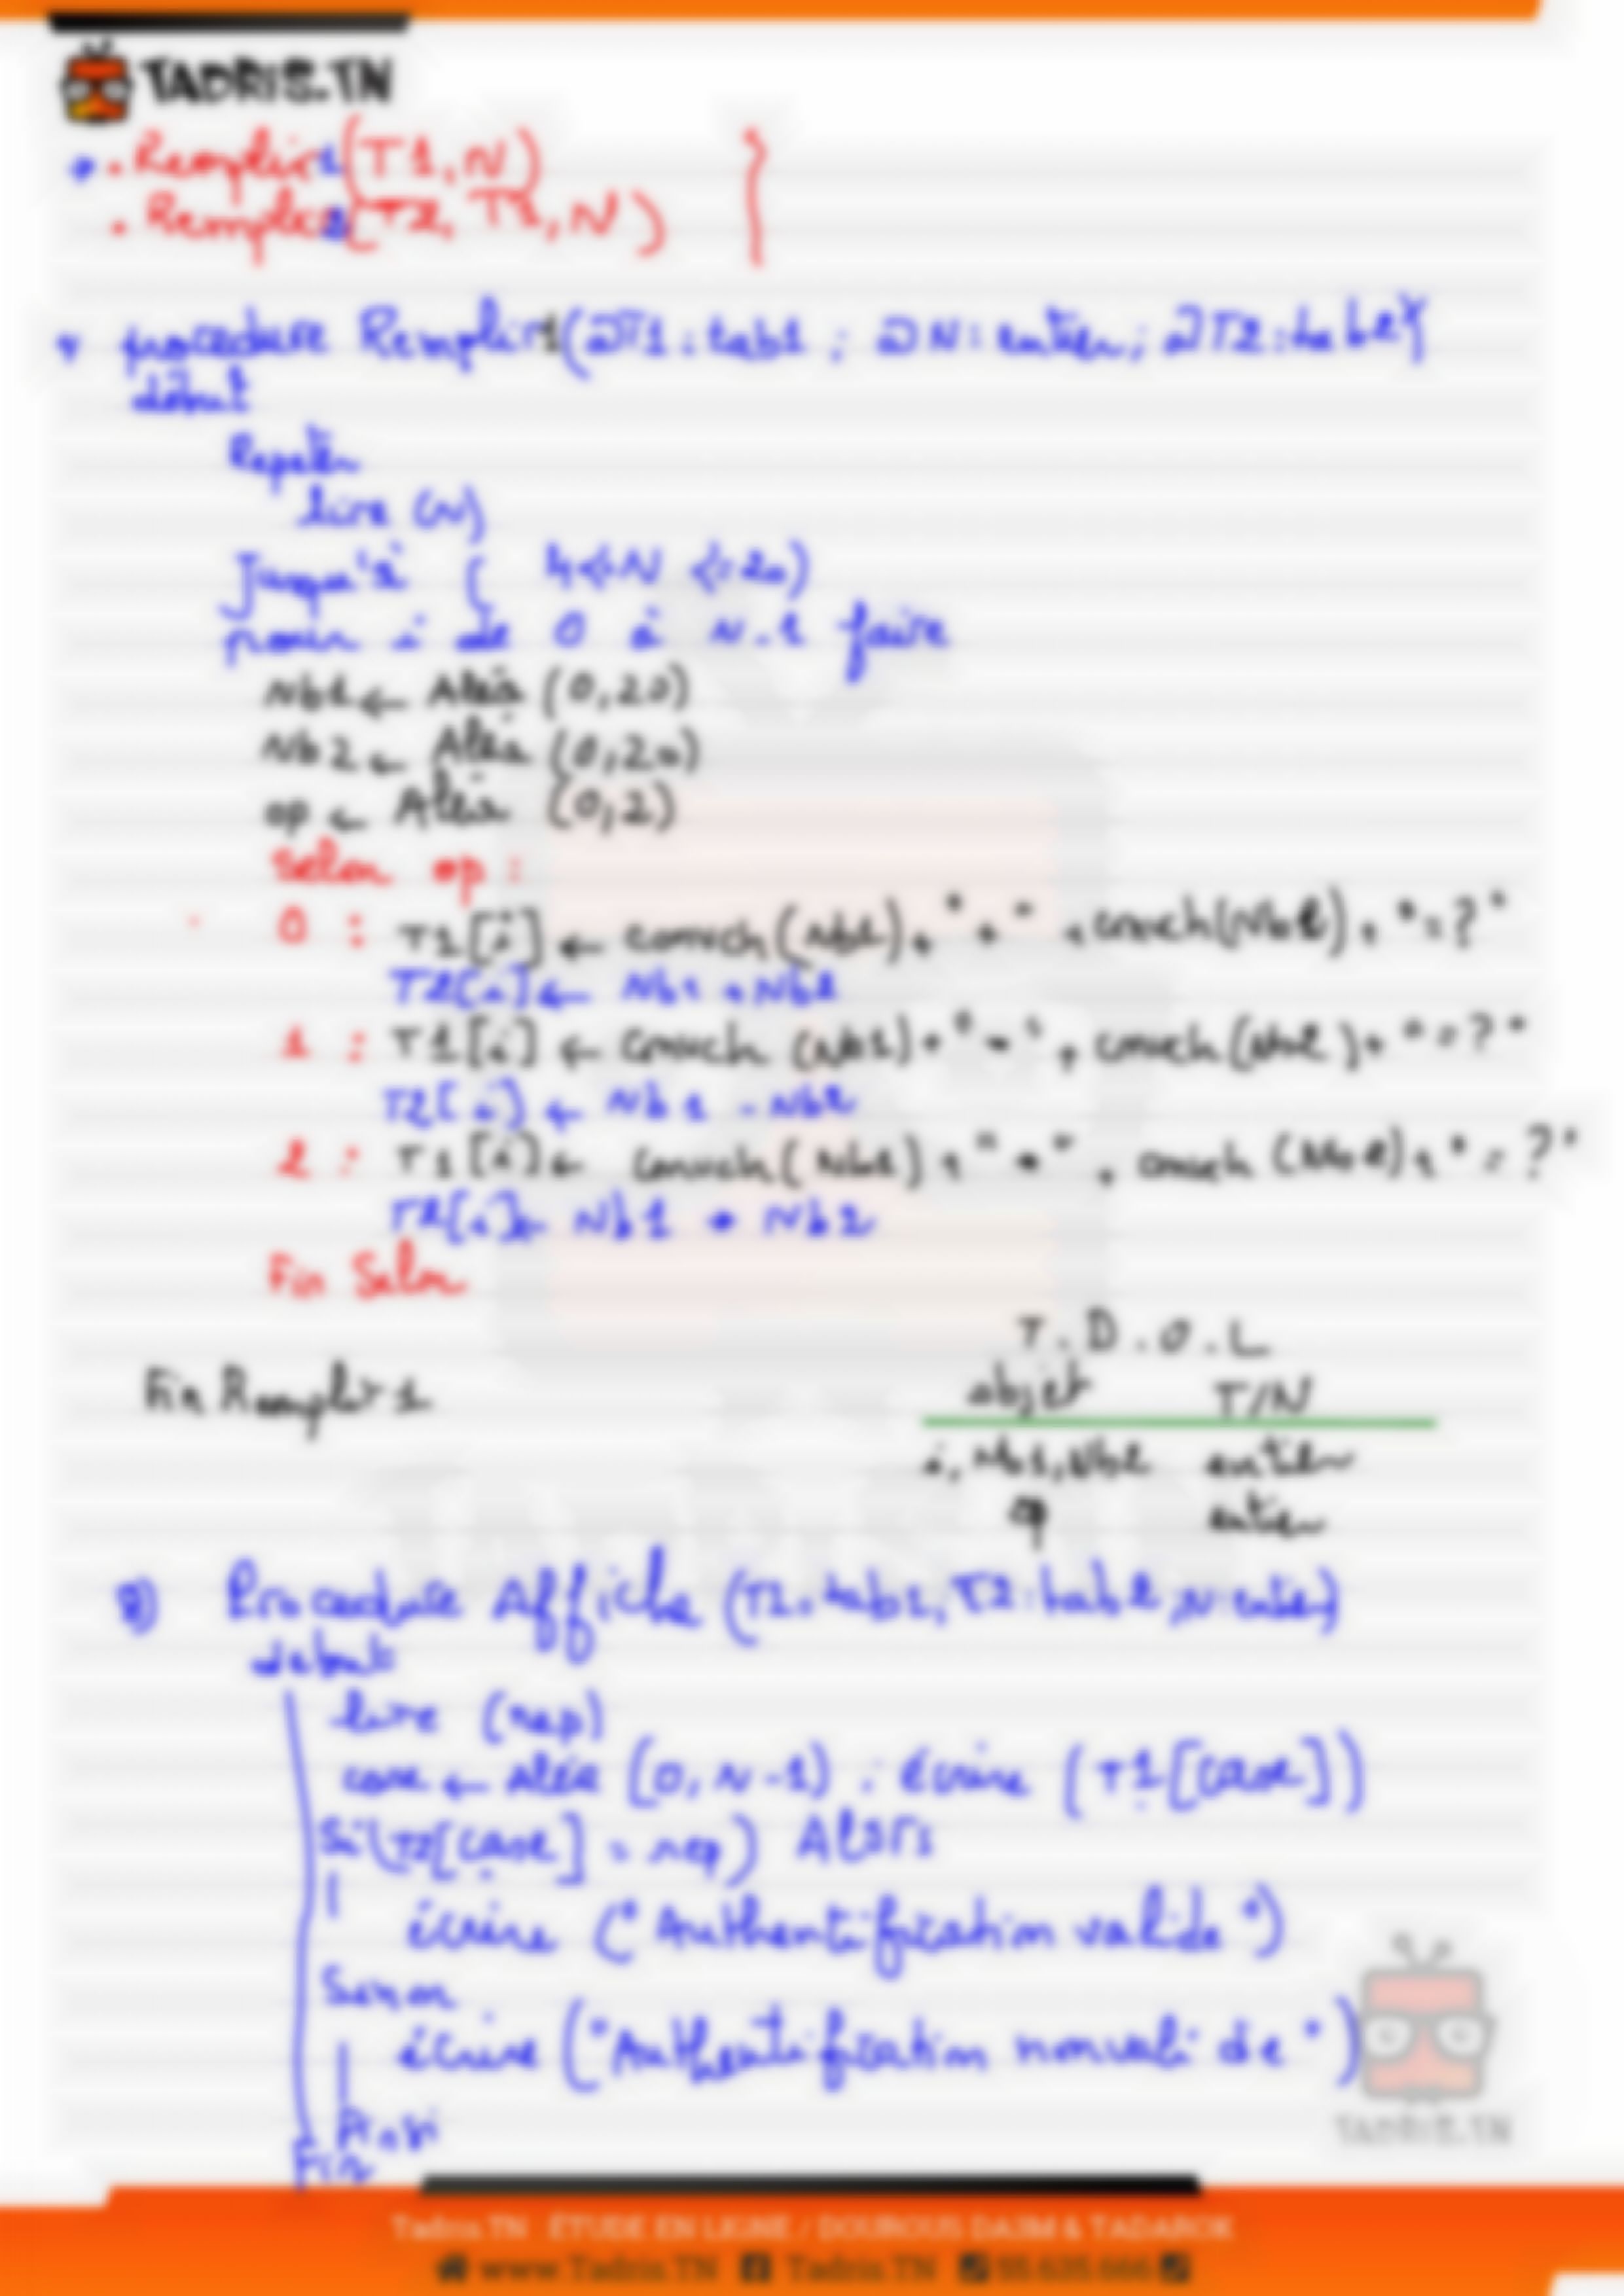 TADRIS.TN
• Remplir1(T1,N)
• Remplir2(T2, T1, N)
procedure Remplir1(@T1:tab1 ; @N:entier; @T2:tab2)
début
Repeter
lire (N)
Jusqu'à ( 4<N <=20)
pour i de 0 à N-1 faire
Nb1 ← Aléa (0,20)
Nb2 ← Aléa (0,20)
op ← Aléa (0,2)
Selon op :
0 : T1[i] ← convch(Nb1)+"+"+convch(Nb2)+"=?"
T2[i] ← Nb1+Nb2
1 : T1[i] ← convch (Nb1)+"-"+convch(Nb2)+"=?"
T2[i] ← Nb1 - Nb2
2 : T1[i] ← convch(Nb1)+"*"+convch(Nb2)+"=?"
T2[i] ← Nb1 * Nb2
Fin Selon
T.D.O.L
Fin Remplir1
objet T/N
i, Nb1, Nb2 entier
op entier
Procedure Affiche (T1:tab1, T2:tab2, N:entier)
debut
lire (rep)
case ← Aléa (0, N-1) : écrire (T1[case])
Si (T2[case] = rep) Alors
écrire ("Authentification valide")
Sinon
écrire ("Authentification non valide")
Finsi
Fin
TADRIS.TN
Tadris.TN ÉTUDE EN LIGNE / DOUROUS DA3M & TADAROK
www.Tadris.TN Tadris.TN